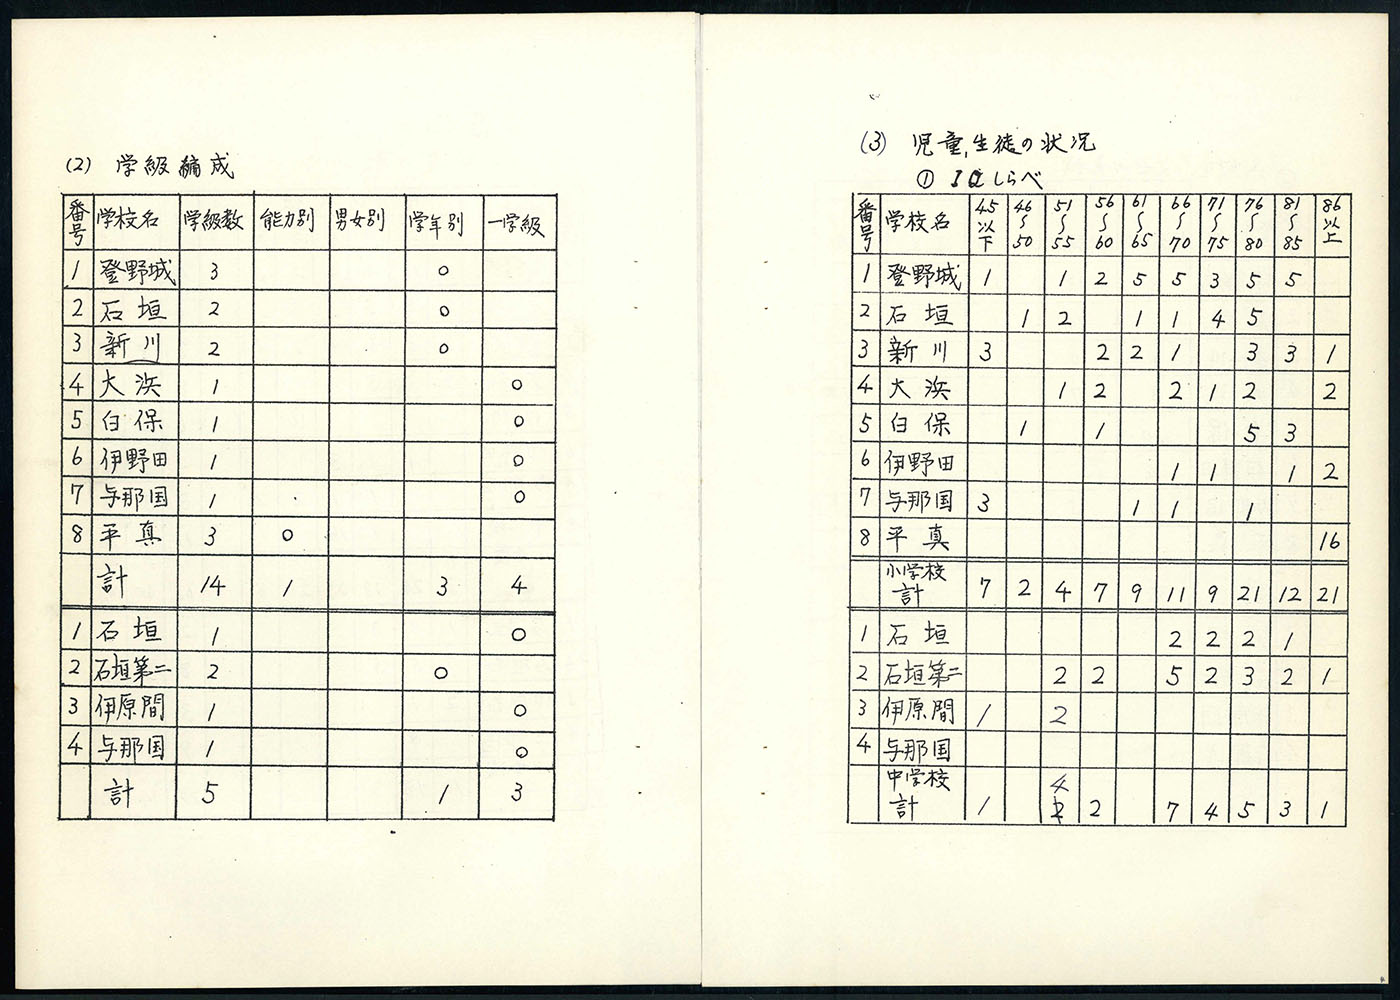 (2) 学級編成
番号 学校名 学級数 能力別 男女別 学年別 一学級
1 登野城 3 ○
2 石垣 2 ○
3 新川 2 ○
4 大浜 1 ○
5 白保 1 ○
6 伊野田 1 ○
7 与那国 1 ○
8 平真 3 ○
計 14 1 3 4
1 石垣 1 ○
2 石垣第二 2 ○
3 伊原間 1 ○
4 与那国 1 ○
計 5 1 3
(3) 児童,生徒の状況
① IQしらべ
番号 学校名 45以下 46〜50 51〜55 56〜60 61〜65 66〜70 71〜75 76〜80 81〜85 86以上
1 登野城 1 1 2 5 5 3 5 5
2 石垣 1 2 1 1 4 5
3 新川 3 2 2 1 3 3 1
4 大浜 1 2 2 1 2 2
5 白保 1 1 5 3
6 伊野田 1 1 1 2
7 与那国 3 1 1 1
8 平真 16
小学校計 7 2 4 7 9 11 9 21 12 21
1 石垣 2 2 2 1
2 石垣第二 2 2 5 2 3 2 1
3 伊原間 1 2
4 与那国
中学校計 1 4 2 7 4 5 3 1